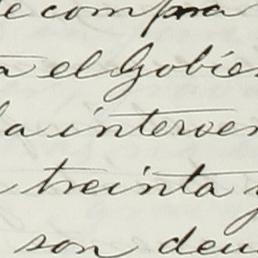 de compra
a el Gobier
la interven
treinta y
son deu